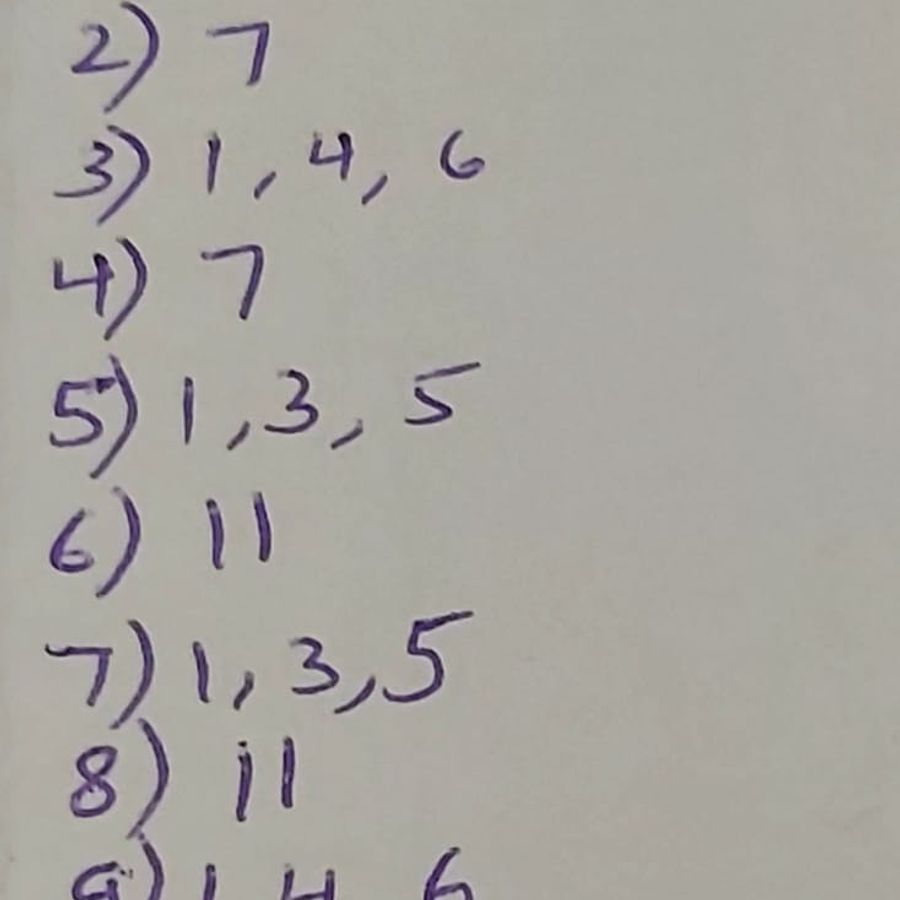 2) 7
3) 1, 4, 6
4) 7
5) 1, 3, 5
6) 11
7) 1, 3, 5
8) 11
9) 1 4 6